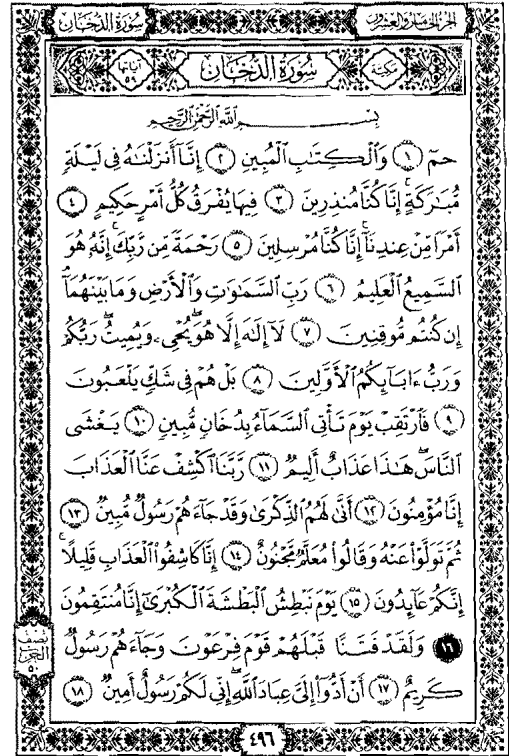 الجزء الخامس والعشرون سورة الدخان
مكية سورة الدخان آياتها ٥٩
بِسْمِ اللَّهِ الرَّحْمَٰنِ الرَّحِيمِ
حمٓ ١ وَٱلْكِتَٰبِ ٱلْمُبِينِ ٢ إِنَّآ أَنزَلْنَٰهُ فِى لَيْلَةٍ
مُّبَٰرَكَةٍ ۚ إِنَّا كُنَّا مُنذِرِينَ ٣ فِيهَا يُفْرَقُ كُلُّ أَمْرٍ حَكِيمٍ ٤
أَمْرًا مِّنْ عِندِنَآ ۚ إِنَّا كُنَّا مُرْسِلِينَ ٥ رَحْمَةً مِّن رَّبِّكَ ۚ إِنَّهُۥ هُوَ
ٱلسَّمِيعُ ٱلْعَلِيمُ ٦ رَبِّ ٱلسَّمَٰوَٰتِ وَٱلْأَرْضِ وَمَا بَيْنَهُمَآ ۖ
إِن كُنتُم مُّوقِنِينَ ٧ لَآ إِلَٰهَ إِلَّا هُوَ يُحْىِۦ وَيُمِيتُ ۖ رَبُّكُمْ
وَرَبُّ ءَابَآئِكُمُ ٱلْأَوَّلِينَ ٨ بَلْ هُمْ فِى شَكٍّ يَلْعَبُونَ
٩ فَٱرْتَقِبْ يَوْمَ تَأْتِى ٱلسَّمَآءُ بِدُخَانٍ مُّبِينٍ ١٠ يَغْشَى
ٱلنَّاسَ ۖ هَٰذَا عَذَابٌ أَلِيمٌ ١١ رَّبَّنَا ٱكْشِفْ عَنَّا ٱلْعَذَابَ
إِنَّا مُؤْمِنُونَ ١٢ أَنَّىٰ لَهُمُ ٱلذِّكْرَىٰ وَقَدْ جَآءَهُمْ رَسُولٌ مُّبِينٌ ١٣
ثُمَّ تَوَلَّوْا۟ عَنْهُ وَقَالُوا۟ مُعَلَّمٌ مَّجْنُونٌ ١٤ إِنَّا كَاشِفُوا۟ ٱلْعَذَابِ قَلِيلًا ۚ
إِنَّكُمْ عَآئِدُونَ ١٥ يَوْمَ نَبْطِشُ ٱلْبَطْشَةَ ٱلْكُبْرَىٰٓ إِنَّا مُنتَقِمُونَ
١٦ وَلَقَدْ فَتَنَّا قَبْلَهُمْ قَوْمَ فِرْعَوْنَ وَجَآءَهُمْ رَسُولٌ
كَرِيمٌ ١٧ أَنْ أَدُّوٓا۟ إِلَىَّ عِبَادَ ٱللَّهِ ۖ إِنِّى لَكُمْ رَسُولٌ أَمِينٌ ١٨
نصف
الحزب
٥٠
٤٩٦